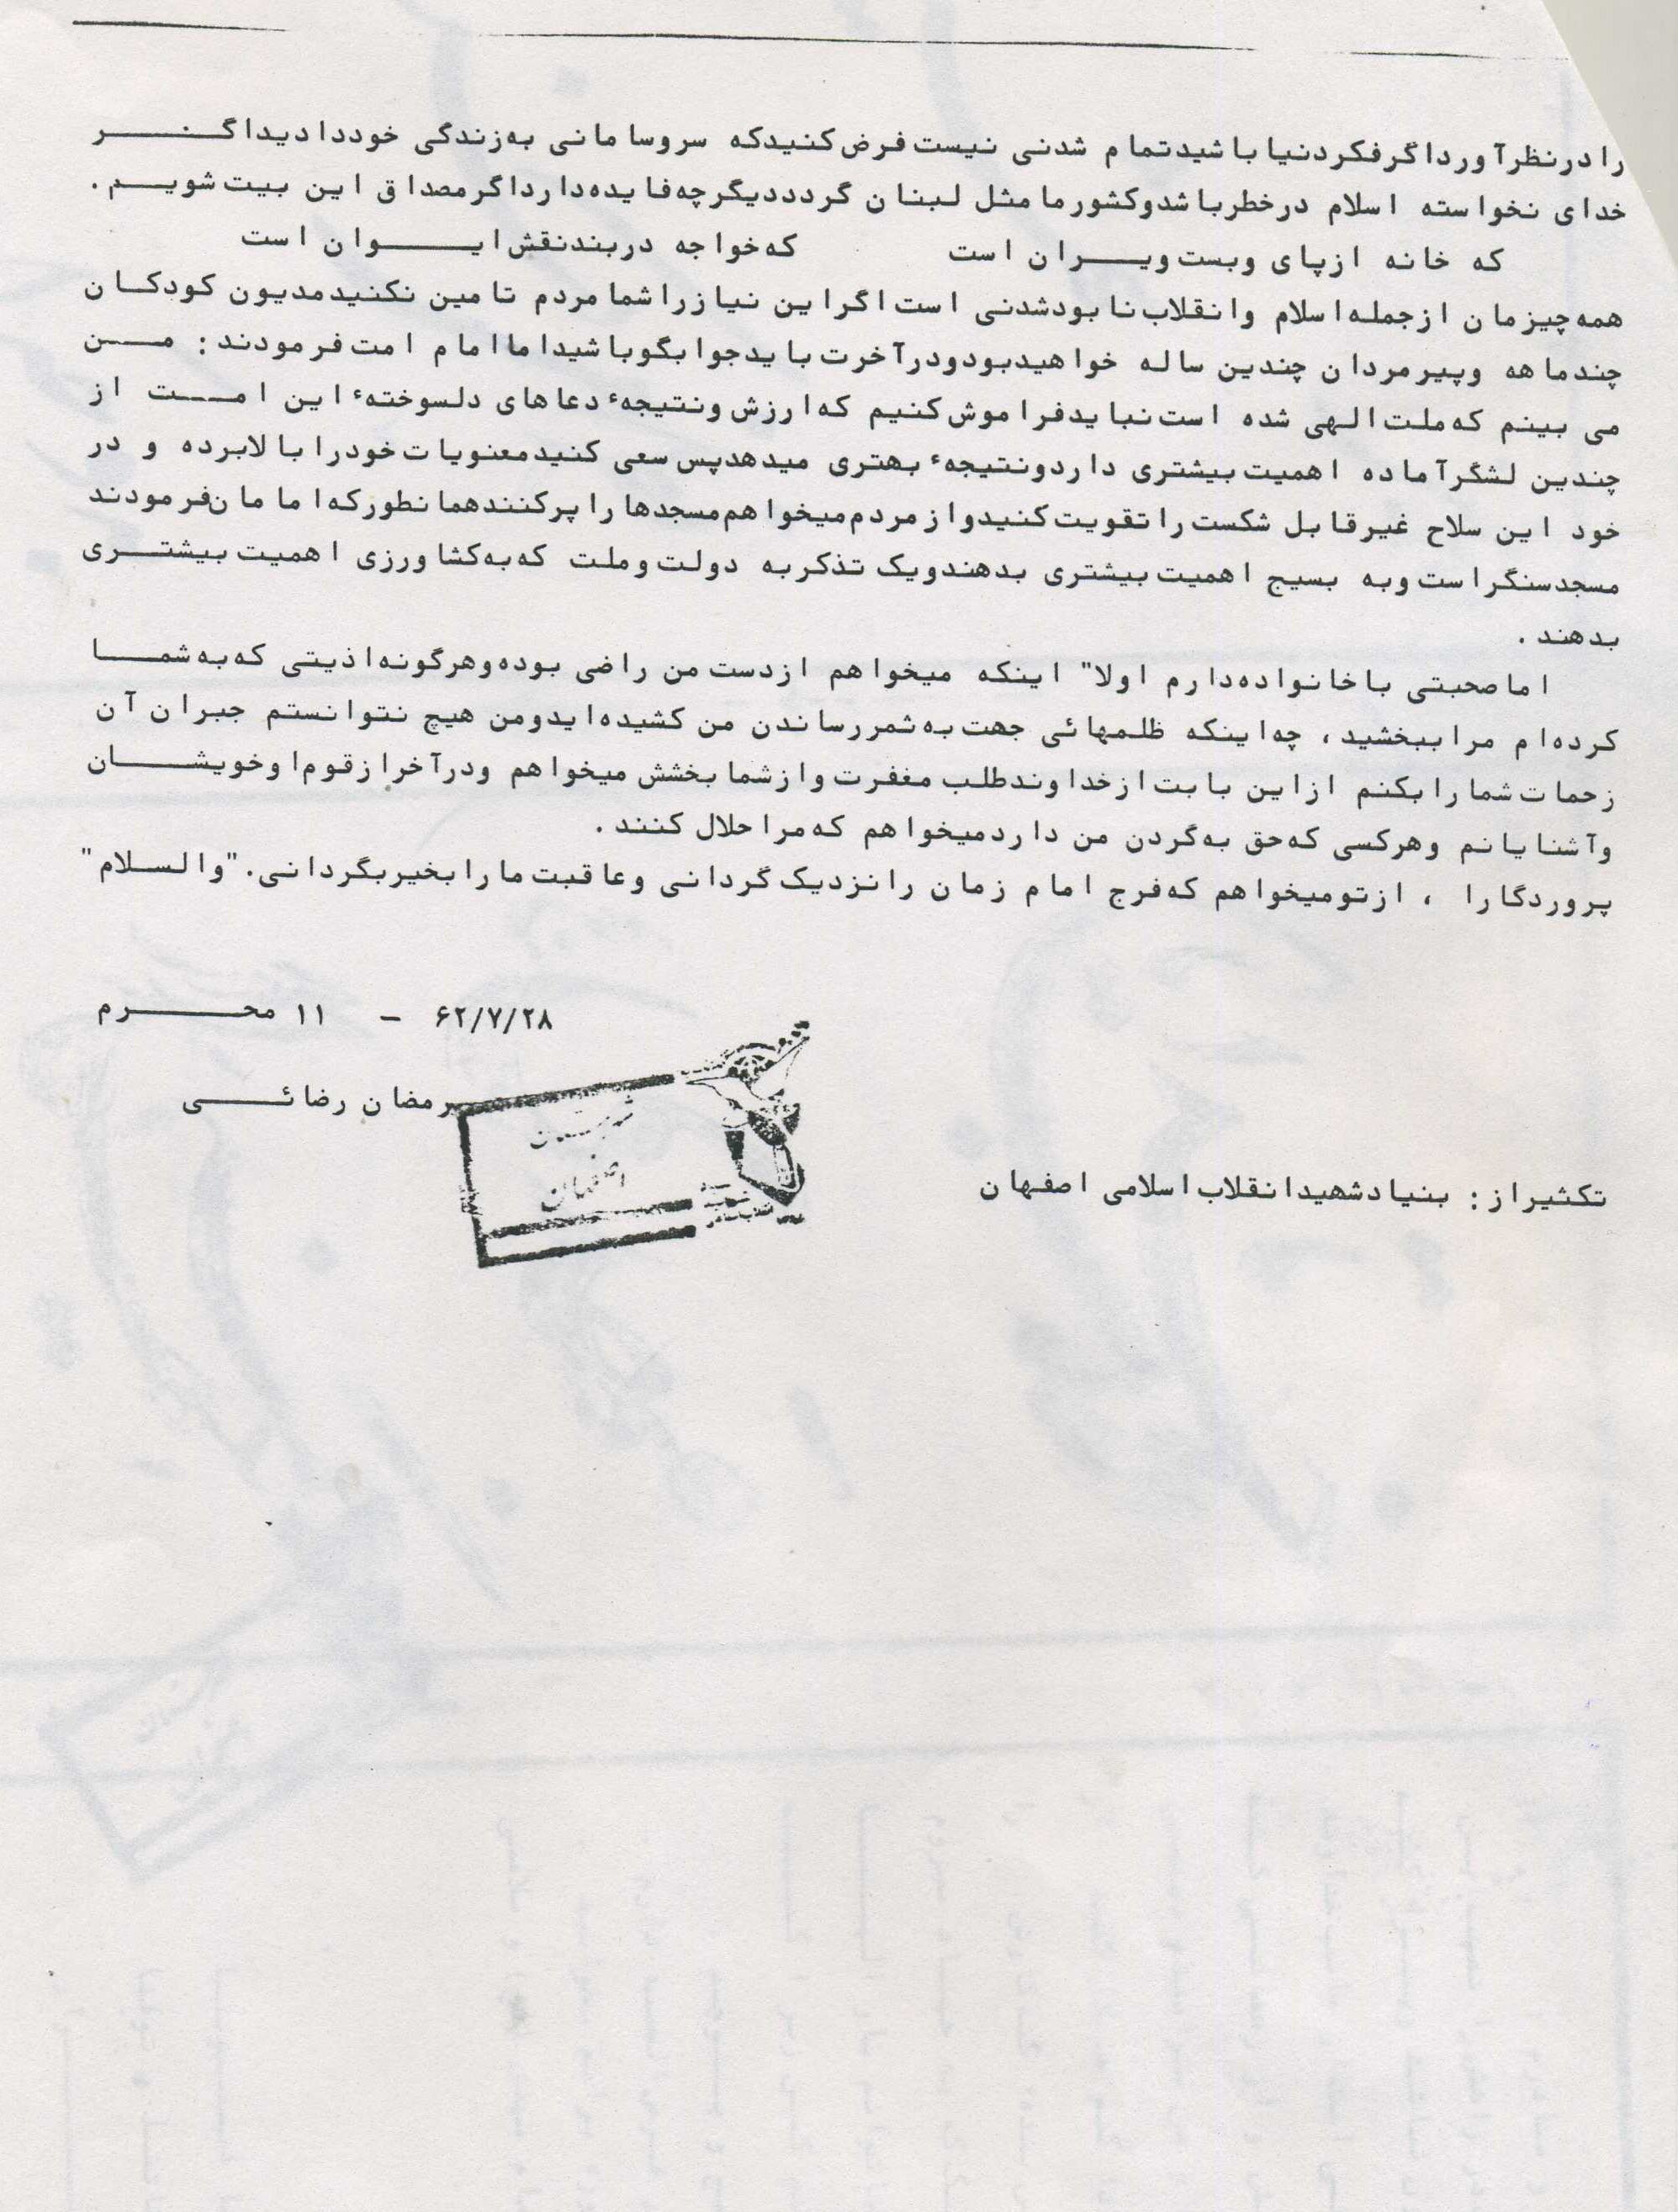 را درنظرآورد اگرفکردنیا باشید تمام شدنی نیست فرض کنیدکه سروسامانی به زندگی خوددادید اگر
خدای نخواسته اسلام درخطرباشدوکشورما مثل لبنان گردد دیگرچه فایده دارد اگر مصداق این بیت شویم.
که خانه ازپای وبست ویران است که خواجه دربندنقش ایوان است
همه چیزمان ازجمله اسلام وانقلاب نابودشدنی است اگراین نیازرا شما مردم تامین نکنید مدیون کودکان
چندماهه وپیرمردان چندین ساله خواهیدبود ودرآخرت باید جوابگوباشید اما امام امت فرمودند: من
می بینم که ملت الهی شده است نباید فراموش کنیم که ارزش ونتیجهٔ دعاهای دلسوختهٔ این امت از
چندین لشگرآماده اهمیت بیشتری دارد ونتیجهٔ بهتری میدهدپس سعی کنید معنویات خودرا بالابرده و در
خود این سلاح غیرقابل شکست را تقویت کنیدوازمردم میخواهم مسجدها را پرکنند همانطورکه امامان فرمودند
مسجدسنگراست وبه بسیج اهمیت بیشتری بدهندویک تذکربه دولت وملت که به کشاورزی اهمیت بیشتری
بدهند.
اما صحبتی باخانواده دارم اولا" اینکه میخواهم ازدست من راضی بوده وهرگونه اذیتی که به شما
کرده ام مراببخشید، چه اینکه ظلمهائی جهت به ثمررساندن من کشیده ایدومن هیچ نتوانستم جبران آن
زحمات شما رابکنم ازاین بابت ازخداوندطلب مغفرت وازشما بخشش میخواهم ودرآخرازقوم اوخویشان
وآشنایانم وهرکسی که حق به گردن من دارد میخواهم که مراحلال کنند.
پروردگارا ، ازتومیخواهم که فرج امام زمان رانزدیک گردانی وعاقبت مارا بخیربگردانی."والسلام"
۶۲/۷/۲۸ – ۱۱ محرم
رمضان رضائی
تکثیراز: بنیادشهیدانقلاب اسلامی اصفهان